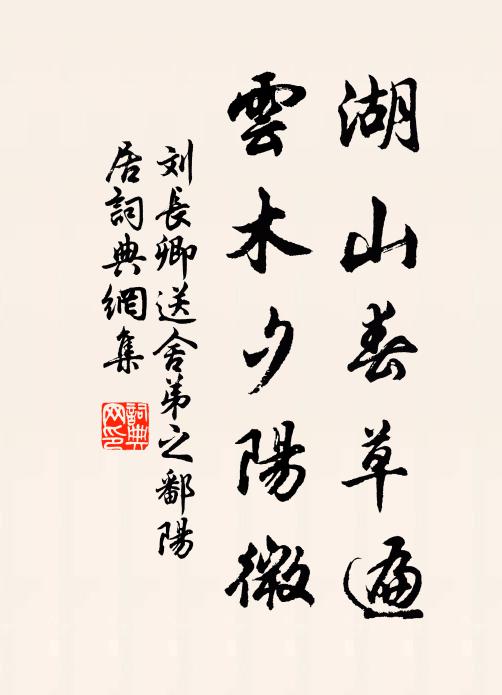 湖山春草遍
雲木夕陽微
刘長卿送舍弟之鄱陽
居詞典網集
詞典网印